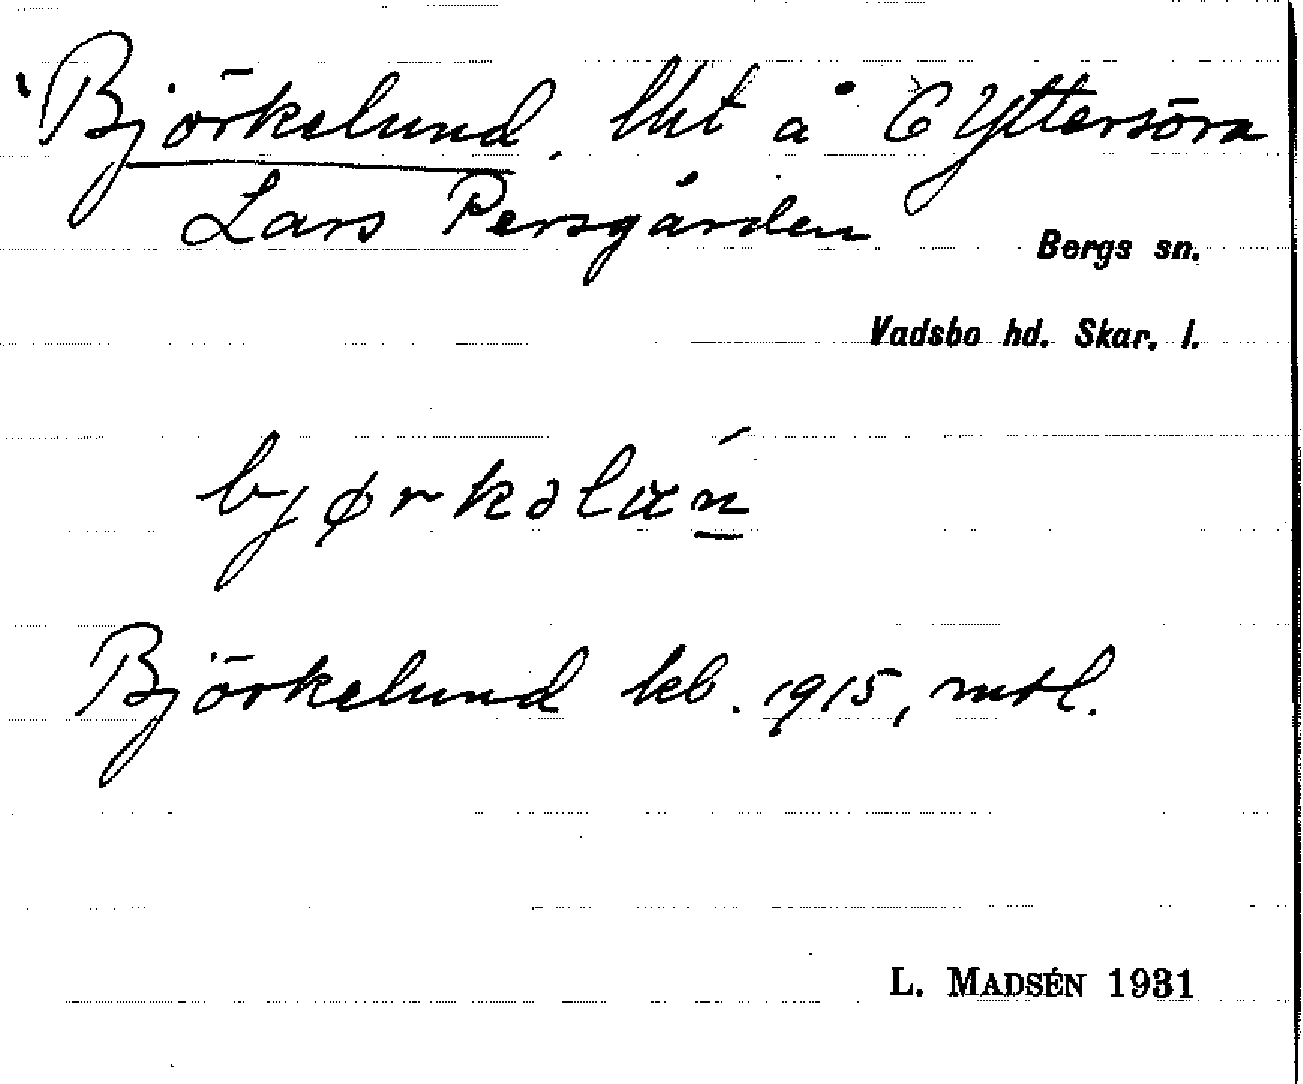 Björkelund. lht å C Yttersöra
Lars Persgården
Bergs sn.
Vadsbo hd. Skar. l.
bjørkəlɯń
Björkelund kb. 1915, mtl.
L. MADSÉN 1931